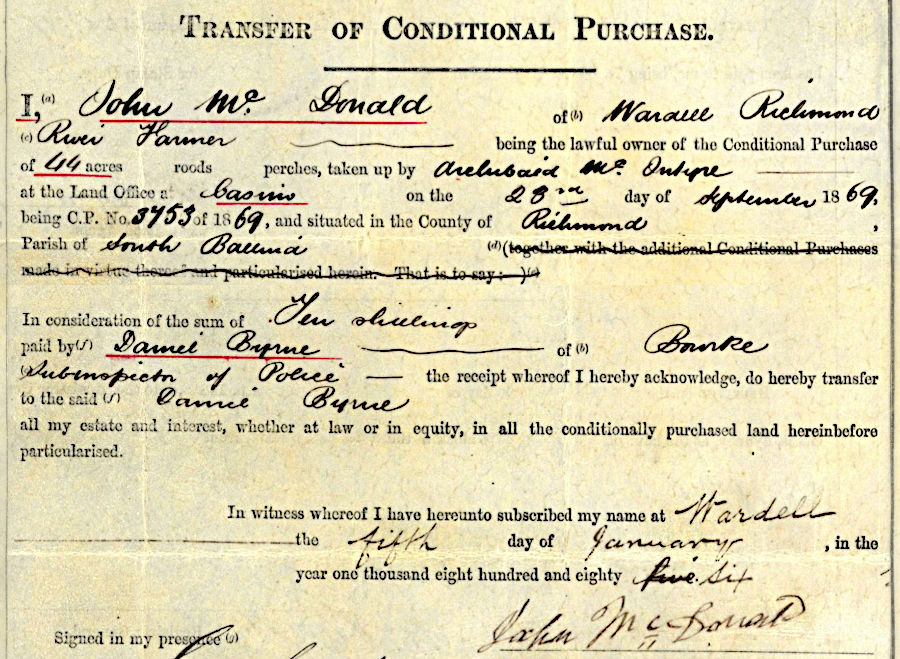 TRANSFER OF CONDITIONAL PURCHASE.
I, (a) John Mc. Donald of (b) Wardell Richmond
(c) River Farmer being the lawful owner of the Conditional Purchase
of 44 acres roods perches, taken up by Archibald Mc. Intyre
at the Land Office at Casino on the 28rd day of September 1869,
being C.P. No. 3753 of 1869, and situated in the County of Richmond ,
Parish of South Ballina (d) (together with the additional Conditional Purchases
made in virtue thereof and particularised herein. That is to say: )(e)
In consideration of the sum of Ten shillings
paid by (f) Daniel Byrne of (b) Bourke
(c) Subinspector of Police — the receipt whereof I hereby acknowledge, do hereby transfer
to the said (f) Daniel Byrne
all my estate and interest, whether at law or in equity, in all the conditionally purchased land hereinbefore
particularised.
In witness whereof I have hereunto subscribed my name at Wardell
the fifth day of January , in the
year one thousand eight hundred and eighty five six
John Mc Donald
Signed in my presence (g)